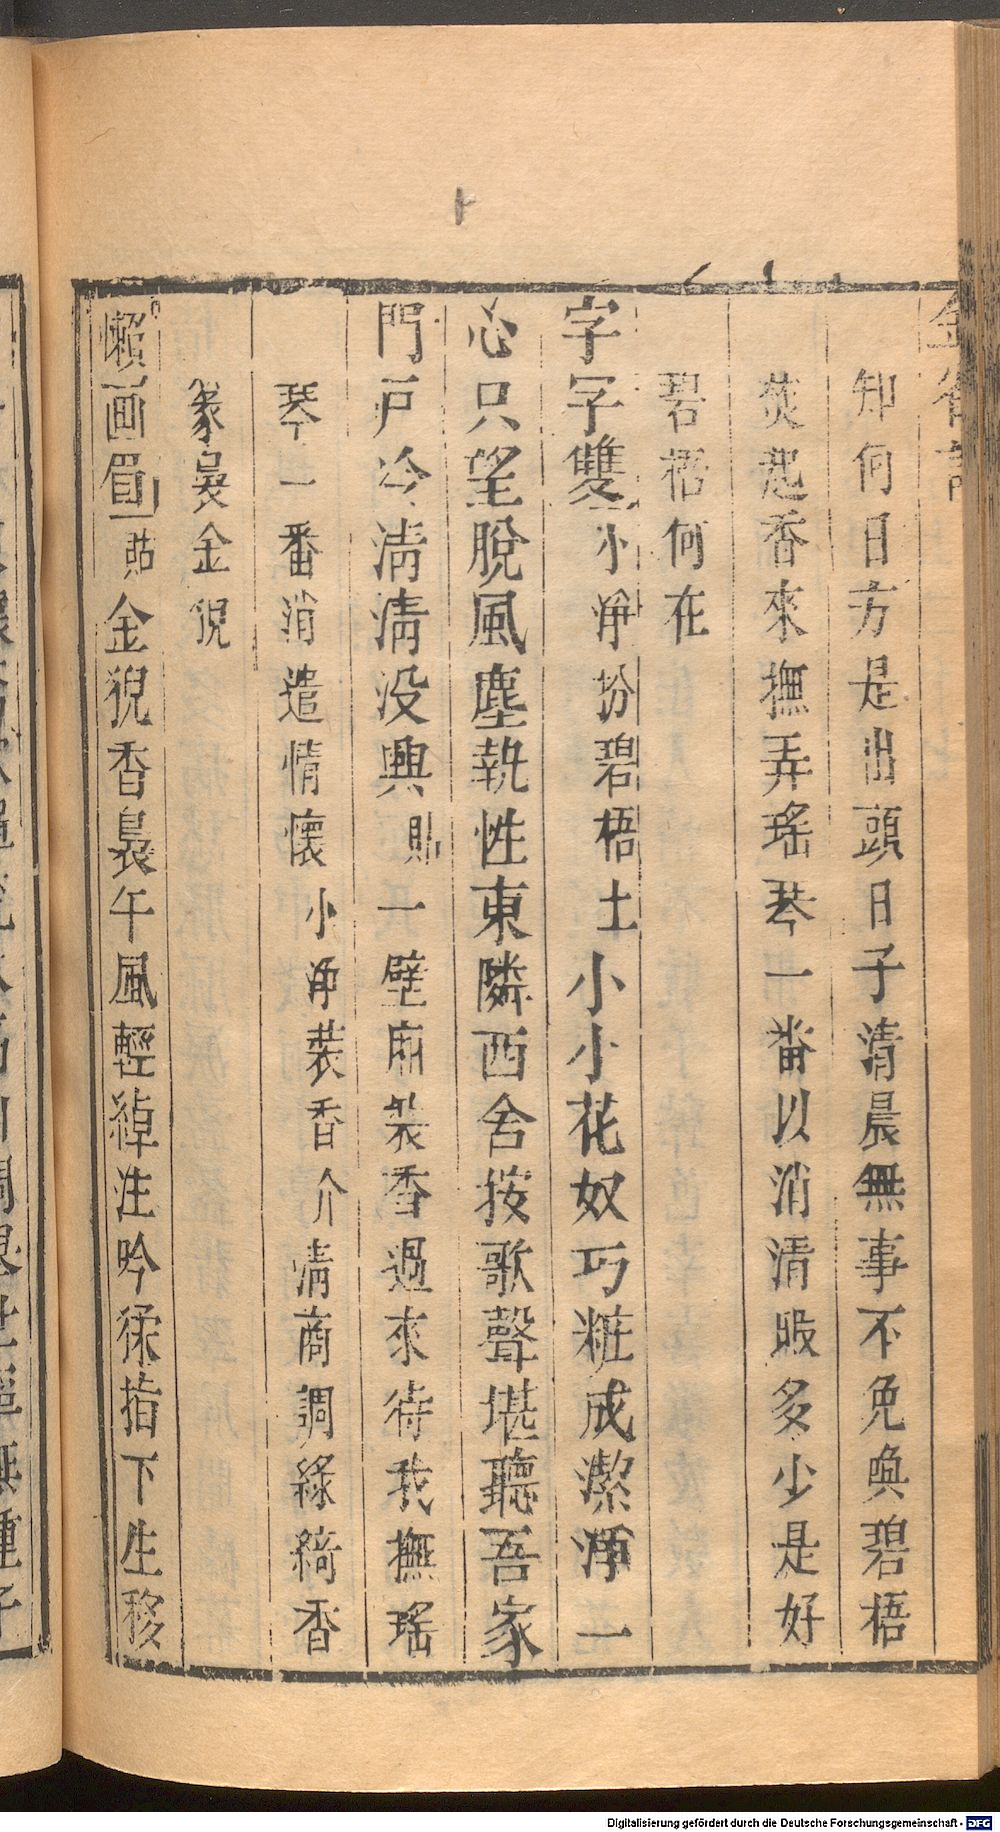 金雀記
知何日方是出頭日子清晨無事不免喚碧梧
焚起香來撫弄瑤琴一畨以消清暇多少是好
碧梧何在
字字雙小淨扮碧梧上小小花奴巧粧成潔淨一
心只望脫風塵執性東隣西舍按歌聲堪聽吾家
門戶冷清清没興貼一壁廂裝香過來待我撫瑤
琴一番消遣情懷小淨裝香介清商調綠綺香
篆裊金猊
懶画眉貼金猊香裊午風輕綽注吟猱指下生移
Digitalisierung gefördert durch die Deutsche Forschungsgemeinschaft - DFG